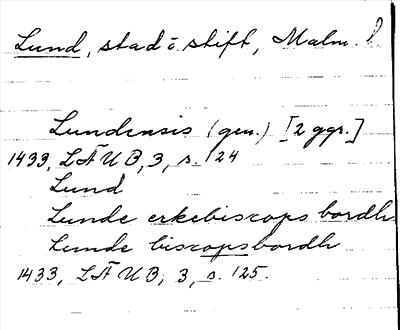 Lund, stad o. stift, Malm. l
Lundensis (gen.) [2 ggr.]
1433, LÄUB, 3, s. 124
Lund
Lunde erkebiscops bordh
Lunde biscopsbordh
1433, LÄUB, 3, s. 125.